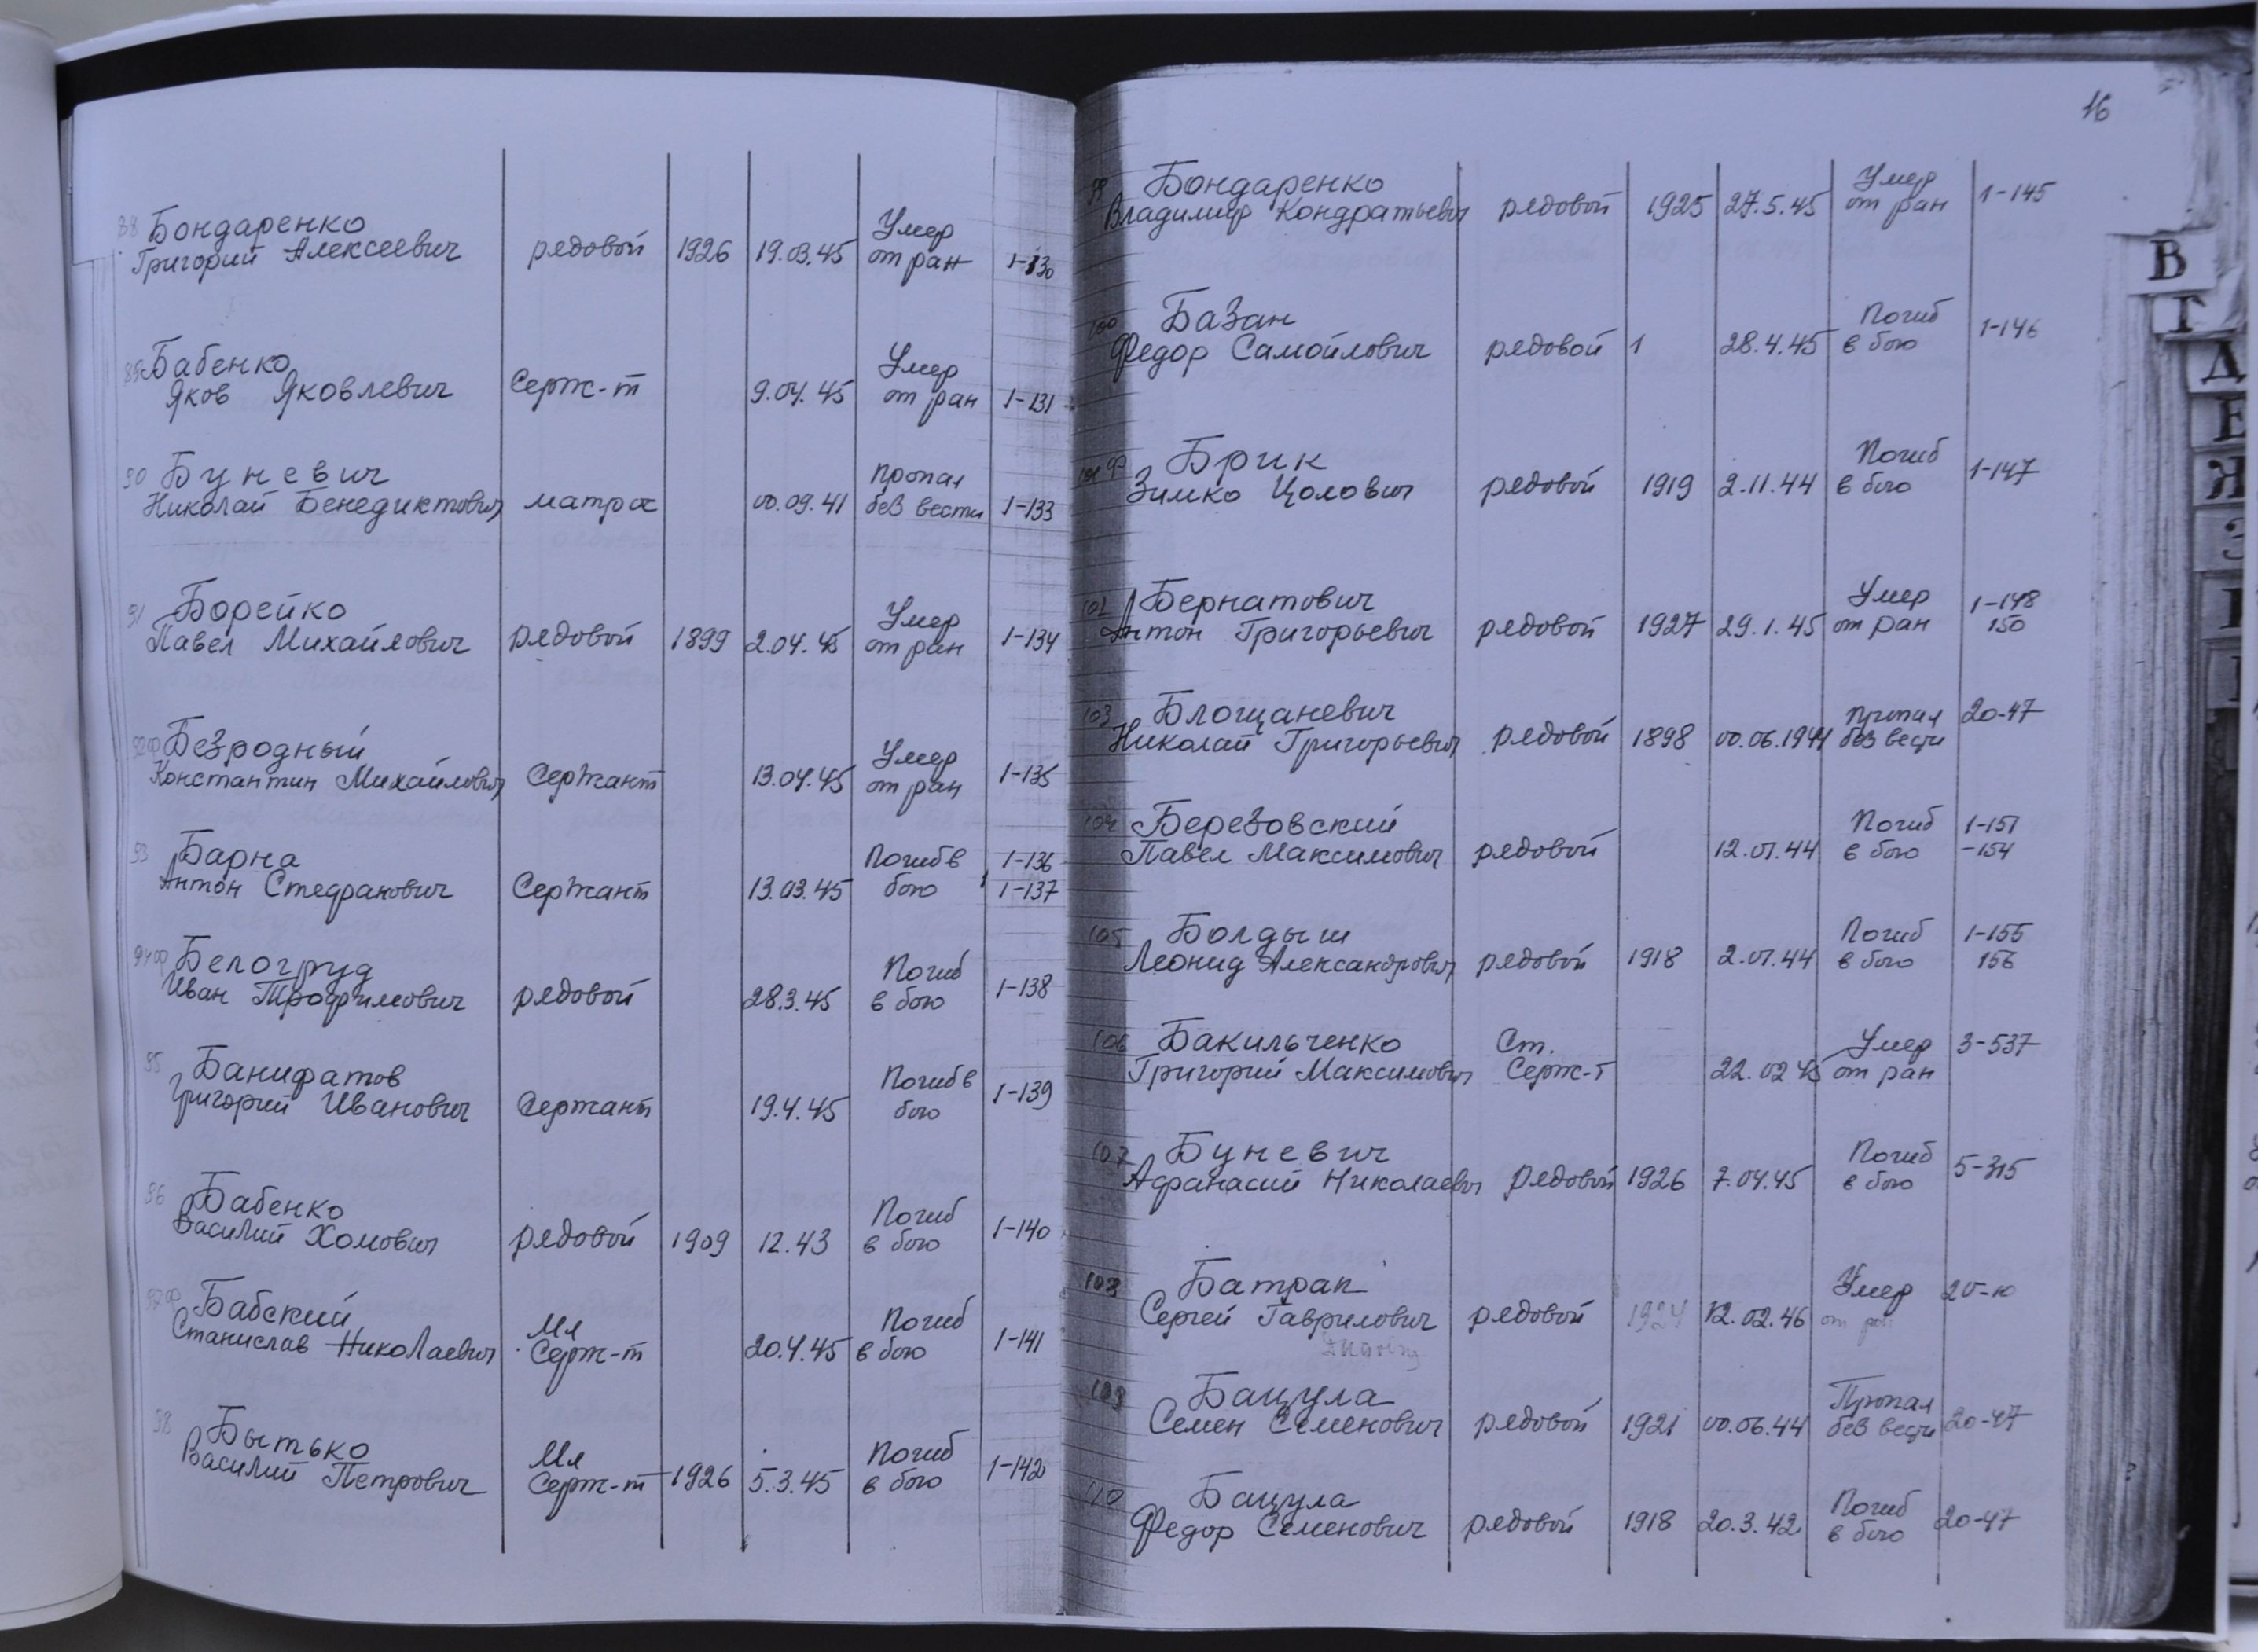 88 Бондаренко
Григорий Алексеевич рядовой 1926 19.03.45 Умер от ран 1-130
89 Бабенко
Яков Яковлевич Серж-т 9.04.45 Умер от ран 1-131
90 Буневич
Николай Бенедиктович матрос 00.09.41 пропал без вести 1-133
91 Борейко
Павел Михайлович рядовой 1899 2.04.45 Умер от ран 1-134
92ф Безродный
Константин Михайлович Сержант 13.04.45 Умер от ран 1-135
93 Барна
Антон Стефанович Сержант 13.03.45 Погиб в бою 1-136
1-137
94ф Белогруд
Иван Трофимович рядовой 28.3.45 Погиб в бою 1-138
95 Банифатов
Григорий Иванович Сержант 19.4.45 Погиб в бою 1-139
96 Бабенко
Василий Хомович рядовой 1909 12.43 Погиб в бою 1-140
97ф Бабский
Станислав Николаевич Мл Серж-т 20.4.45 Погиб в бою 1-141
98 Бытько
Василий Петрович Мл Серж-т 1926 5.3.45 Погиб в бою 1-142
16
99 Бондаренко
Владимир Кондратьевич рядовой 1925 27.5.45 Умер от ран 1-145
100 Базан
Федор Самойлович рядовой 1 28.4.45 Погиб в бою 1-146
101ф Брик
Зимко Цолович рядовой 1919 2.11.44 Погиб в бою 1-147
102 Бернатович
Антон Григорьевич рядовой 1927 29.1.45 Умер от ран 1-148
150
103 Блощаневич
Николай Григорьевич рядовой 1898 00.06.1944 пропал без вести 20-47
104 Березовский
Павел Максимович рядовой 12.01.44 Погиб в бою 1-151
-154
105 Болдыш
Леонид Александрович рядовой 1918 2.01.44 Погиб в бою 1-155
156
106 Бакильченко
Григорий Максимович Ст. Серж-т 22.02.45 Умер от ран 3-537
107 Буневич
Афанасий Николаевич Рядовой 1926 7.04.45 Погиб в бою 5-315
108 Батрак
Сергей Гаврилович рядовой 1924 12.02.46 Умер от ран 20-10
109 Бацула
Семен Семенович рядовой 1921 00.06.44 Пропал без вести 20-47
110 Бацула
Федор Семенович рядовой 1918 20.3.42 Погиб в бою 20-47
В
Г
Д
Е
Ж
З